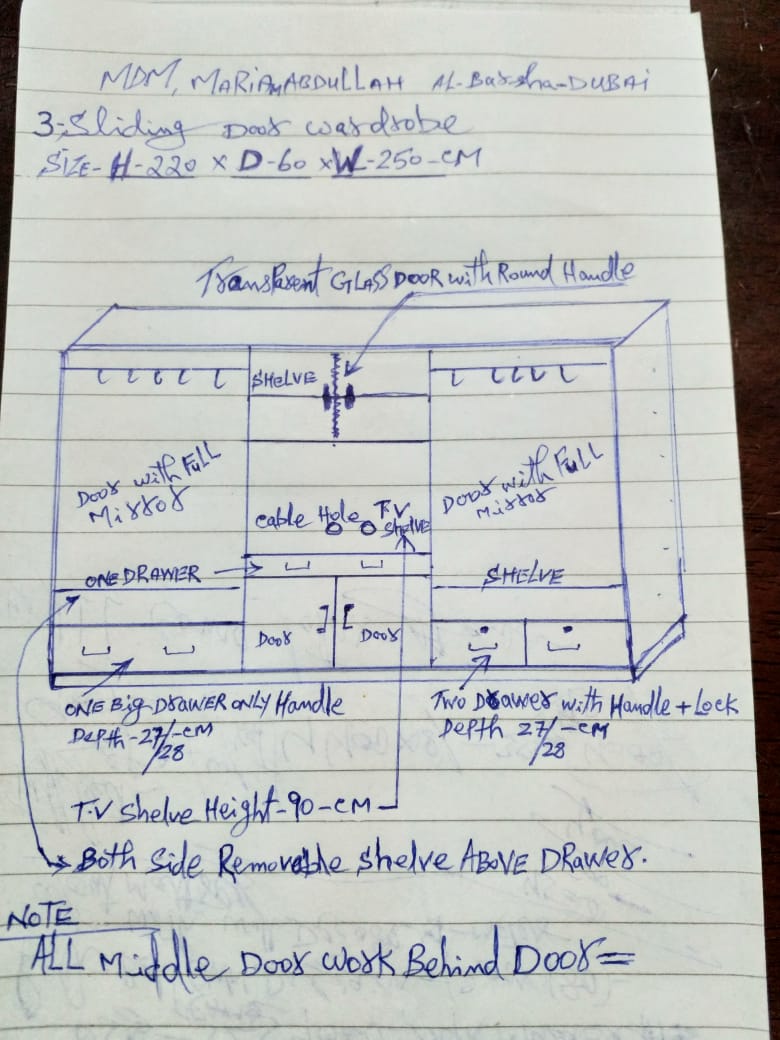 MDM, MARiAM ABDULLAH AL-Barsha-DUBAi
3-Sliding Door wardrobe
SIZE- H-220 x D-60 x W-250-CM
Transparent GLASS DOOR with Round Handle
SHELVE
Door with Full
Mirror
Door with Full
Mirror
cable Hole T.V
Shelve
ONE DRAWER
SHELVE
Door
Door
ONE Big-Drawer ONLY Handle
DEPth-27/-CM
28
Two Drawer with Handle + Lock
DePth 27/-CM
28
T.V Shelve Height-90-CM
Both Side Removable Shelve ABOVE DRAWER.
NOTE
ALL Middle Door work Behind Door=